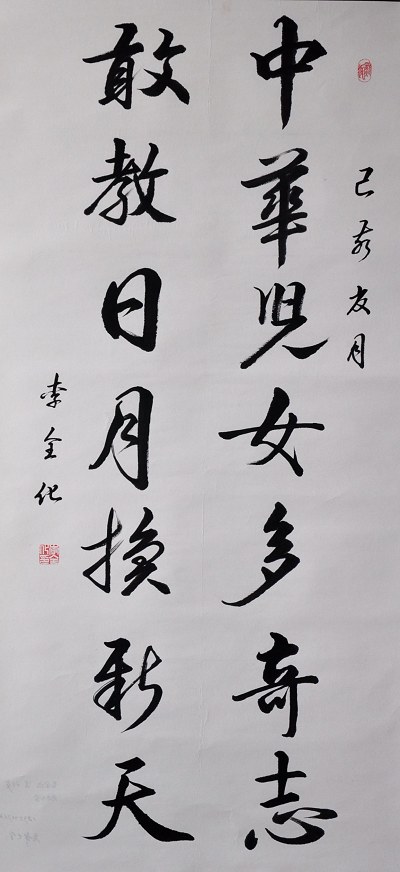 己亥友月
中華児女多奇志
敢教日月換新天
李全化